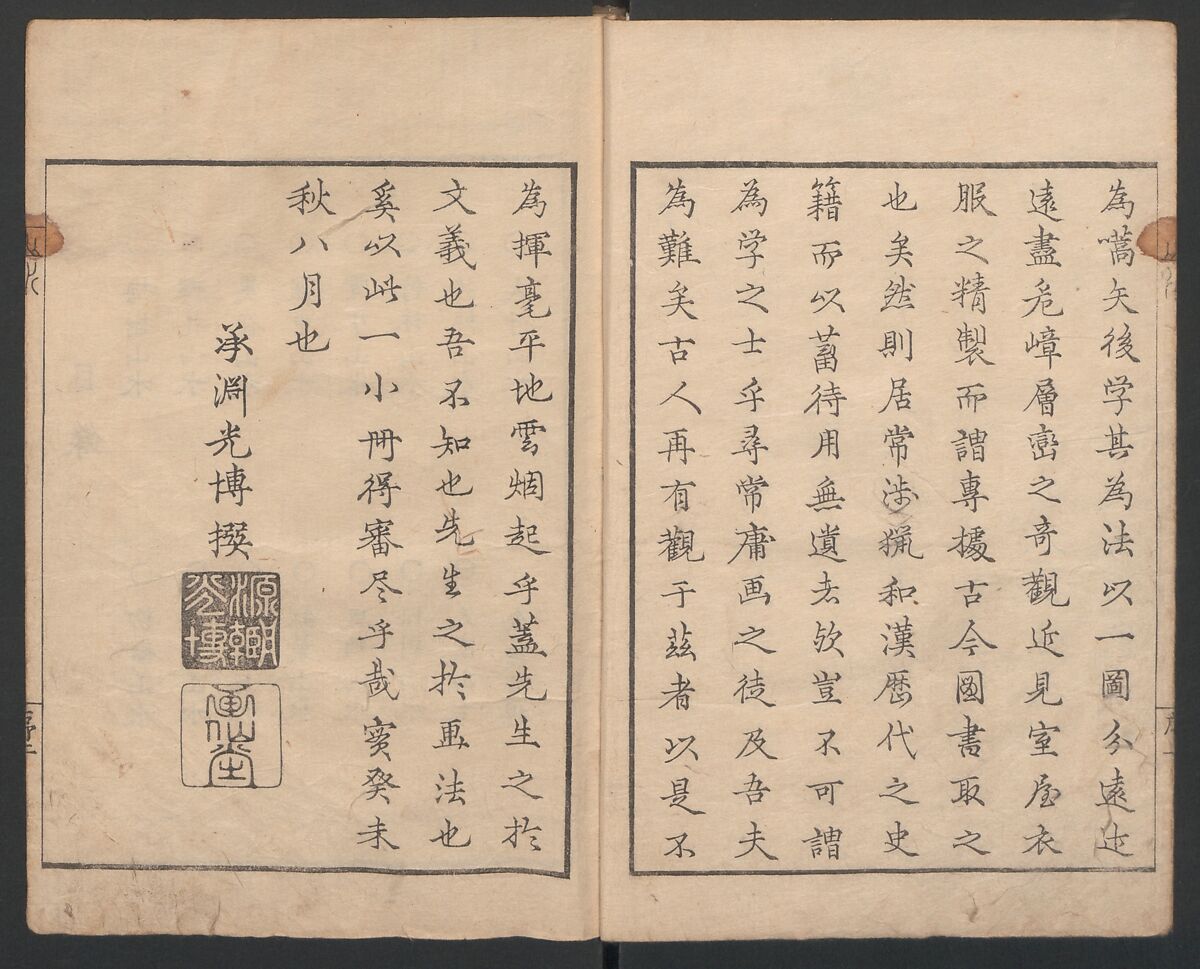 為嚆矢後学其為法以一圖分遠近
遠盡危嶂層巒之奇觀近見室屋衣
服之精製而謂專據古今圖書取之
也矣然則居常渉猟和漢歴代之史
籍而以蓄待用無遺者欤豈不可謂
為学之士乎尋常庸画之徒及吾夫
為難矣古人再有觀于茲者以是不
為揮毫平地雲烟起乎蓋先生之於
文義也吾不知也先生之於画法也
奚以此一小冊得審尽乎哉寳癸未
秋八月也
承淵光博撰
源卿
光博
画仙堂
山水
序二